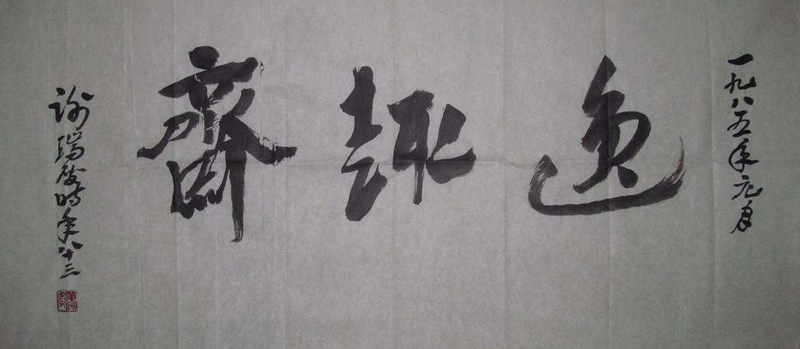 一九八五年元月
逸趣齋
谢瑞階时年八十三